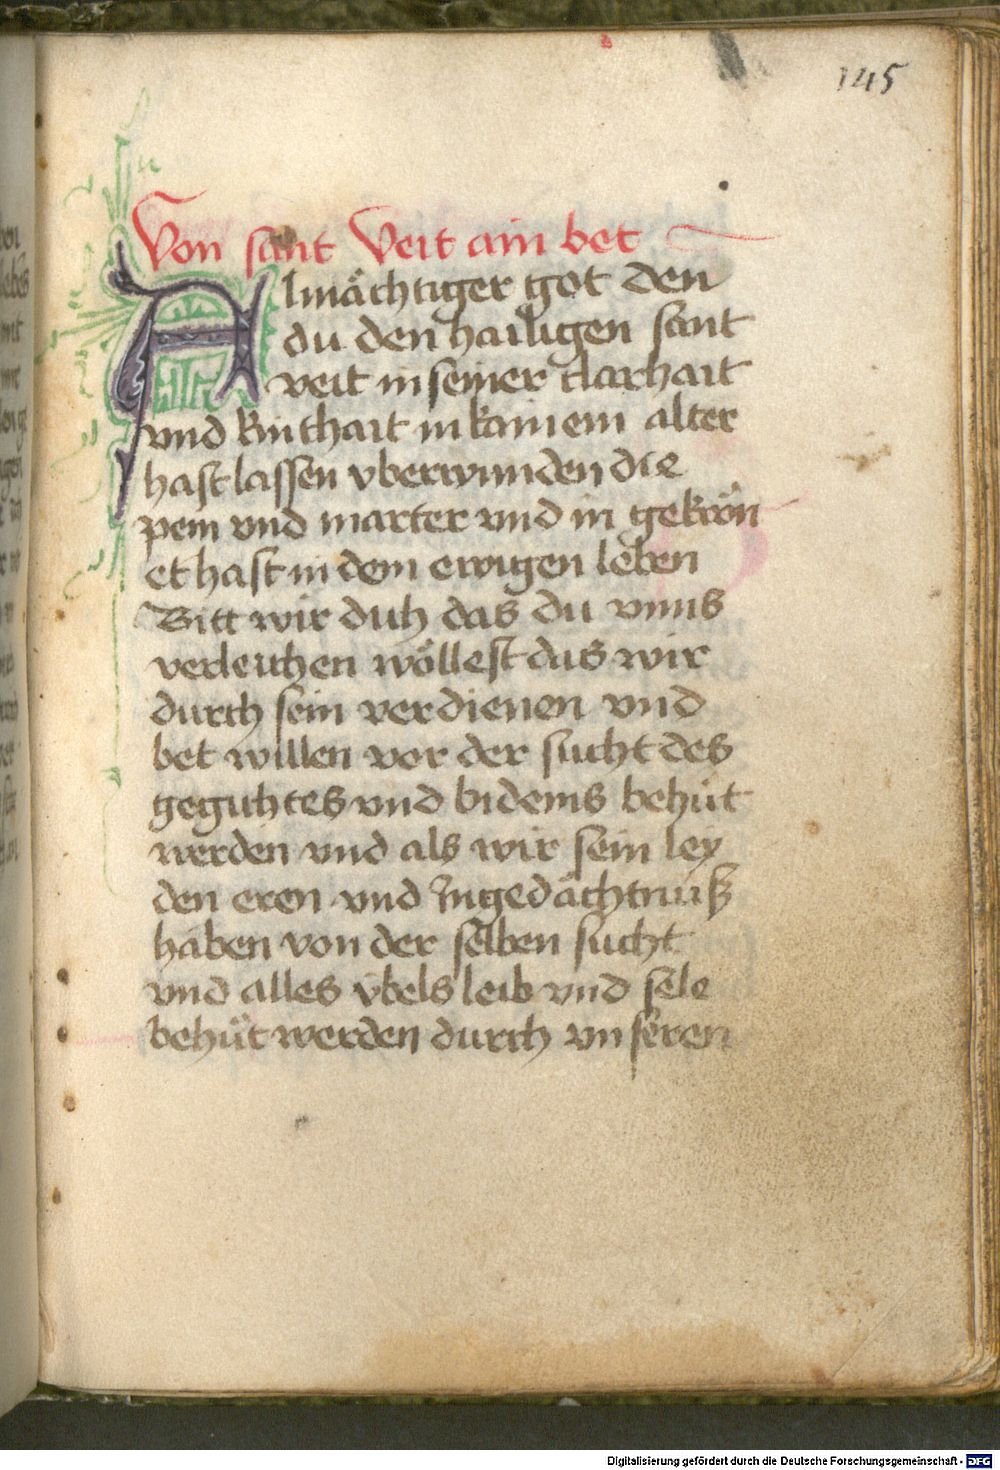 145
Von sant Veit ain bet
Almächtiger got den
du den hailigen sant
veit in seiner clarhait
vnd kinthait in kainem alter
hast lassen vberwinnden die
pein vnd marter vnd in gekrön
et hast in dem ewigen leben
Bitt wir dich das du vnns
verleichen wöllest das wir
durch sein verdienen vnd
bet willen vor der sucht des
gegichtes vnd bidems behüt
werden vnd als wir sein ley
den eren vnd Ingedächtnuß
haben von der selben sucht
vnd alles vbels leib vnd sele
behüt werden durch vnseren
Digitalisierung gefördert durch die Deutsche Forschungsgemeinschaft - DFG